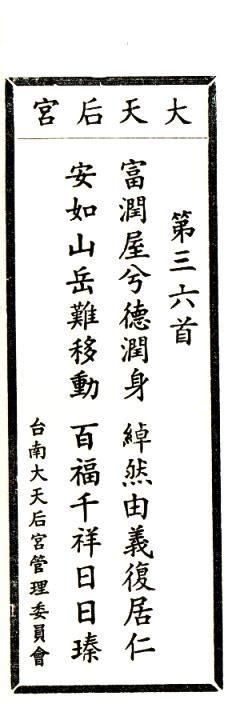 大天后宮
第三六首
富潤屋兮德潤身　綽然由義復居仁
安如山岳難移動　百福千祥日日臻
台南大天后宮管理委員會